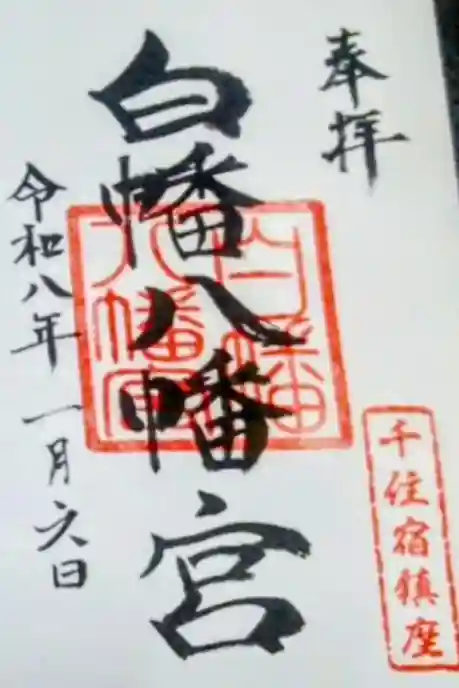 奉拝
千住宿鎮座
白幡八幡宮
白幡
八幡宮
令和八年 一月六日